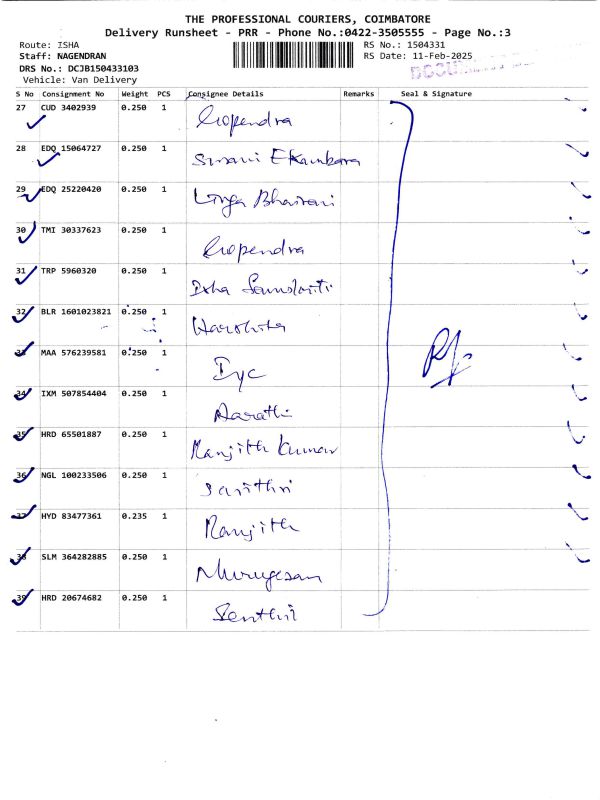 THE PROFESSIONAL COURIERS, COIMBATORE
Delivery Runsheet - PRR - Phone No.:0422-3505555 - Page No.:3
Route: ISHA RS No.: 1504331
Staff: NAGENDRAN RS Date: 11-Feb-2025
DRS No.: DCJB150433103
Vehicle: Van Delivery
S No Consignment No Weight PCS Consignee Details Remarks Seal & Signature
27 CUD 3402939 0.250 1 Gopendra
28 EDQ 15064727 0.250 1 Swami Ekambara
29 EDQ 25220420 0.250 1 Linga Bhairavi
30 TMI 30337623 0.250 1 Gopendra
31 TRP 5960320 0.250 1 Isha Samskriti
32 BLR 1601023821 0.250 1 Harshita
33 MAA 576239581 0.250 1 Iyc
34 IXM 507854404 0.250 1 Aarathi
35 HRD 65501887 0.250 1 Ranjith Kumar
36 NGL 100233506 0.250 1 Savithri
37 HYD 83477361 0.235 1 Ranjith
38 SLM 364282885 0.250 1 Murugesan
39 HRD 20674682 0.250 1 Senthil